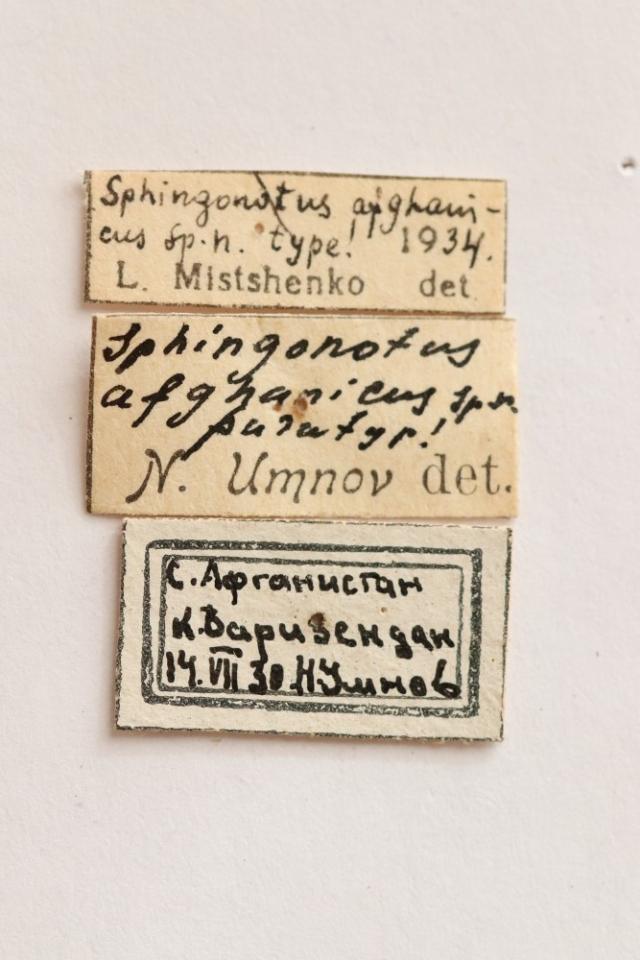 Sphingonotus afghani-
cus sp.n. type! 1934.
L. Mistshenko det.
Sphingonotus
afghanicus sp.n.
paratyp.!
N. Umnov det.
С. Афганистан
К. Варизендан
14.VII 30 Н Умнов